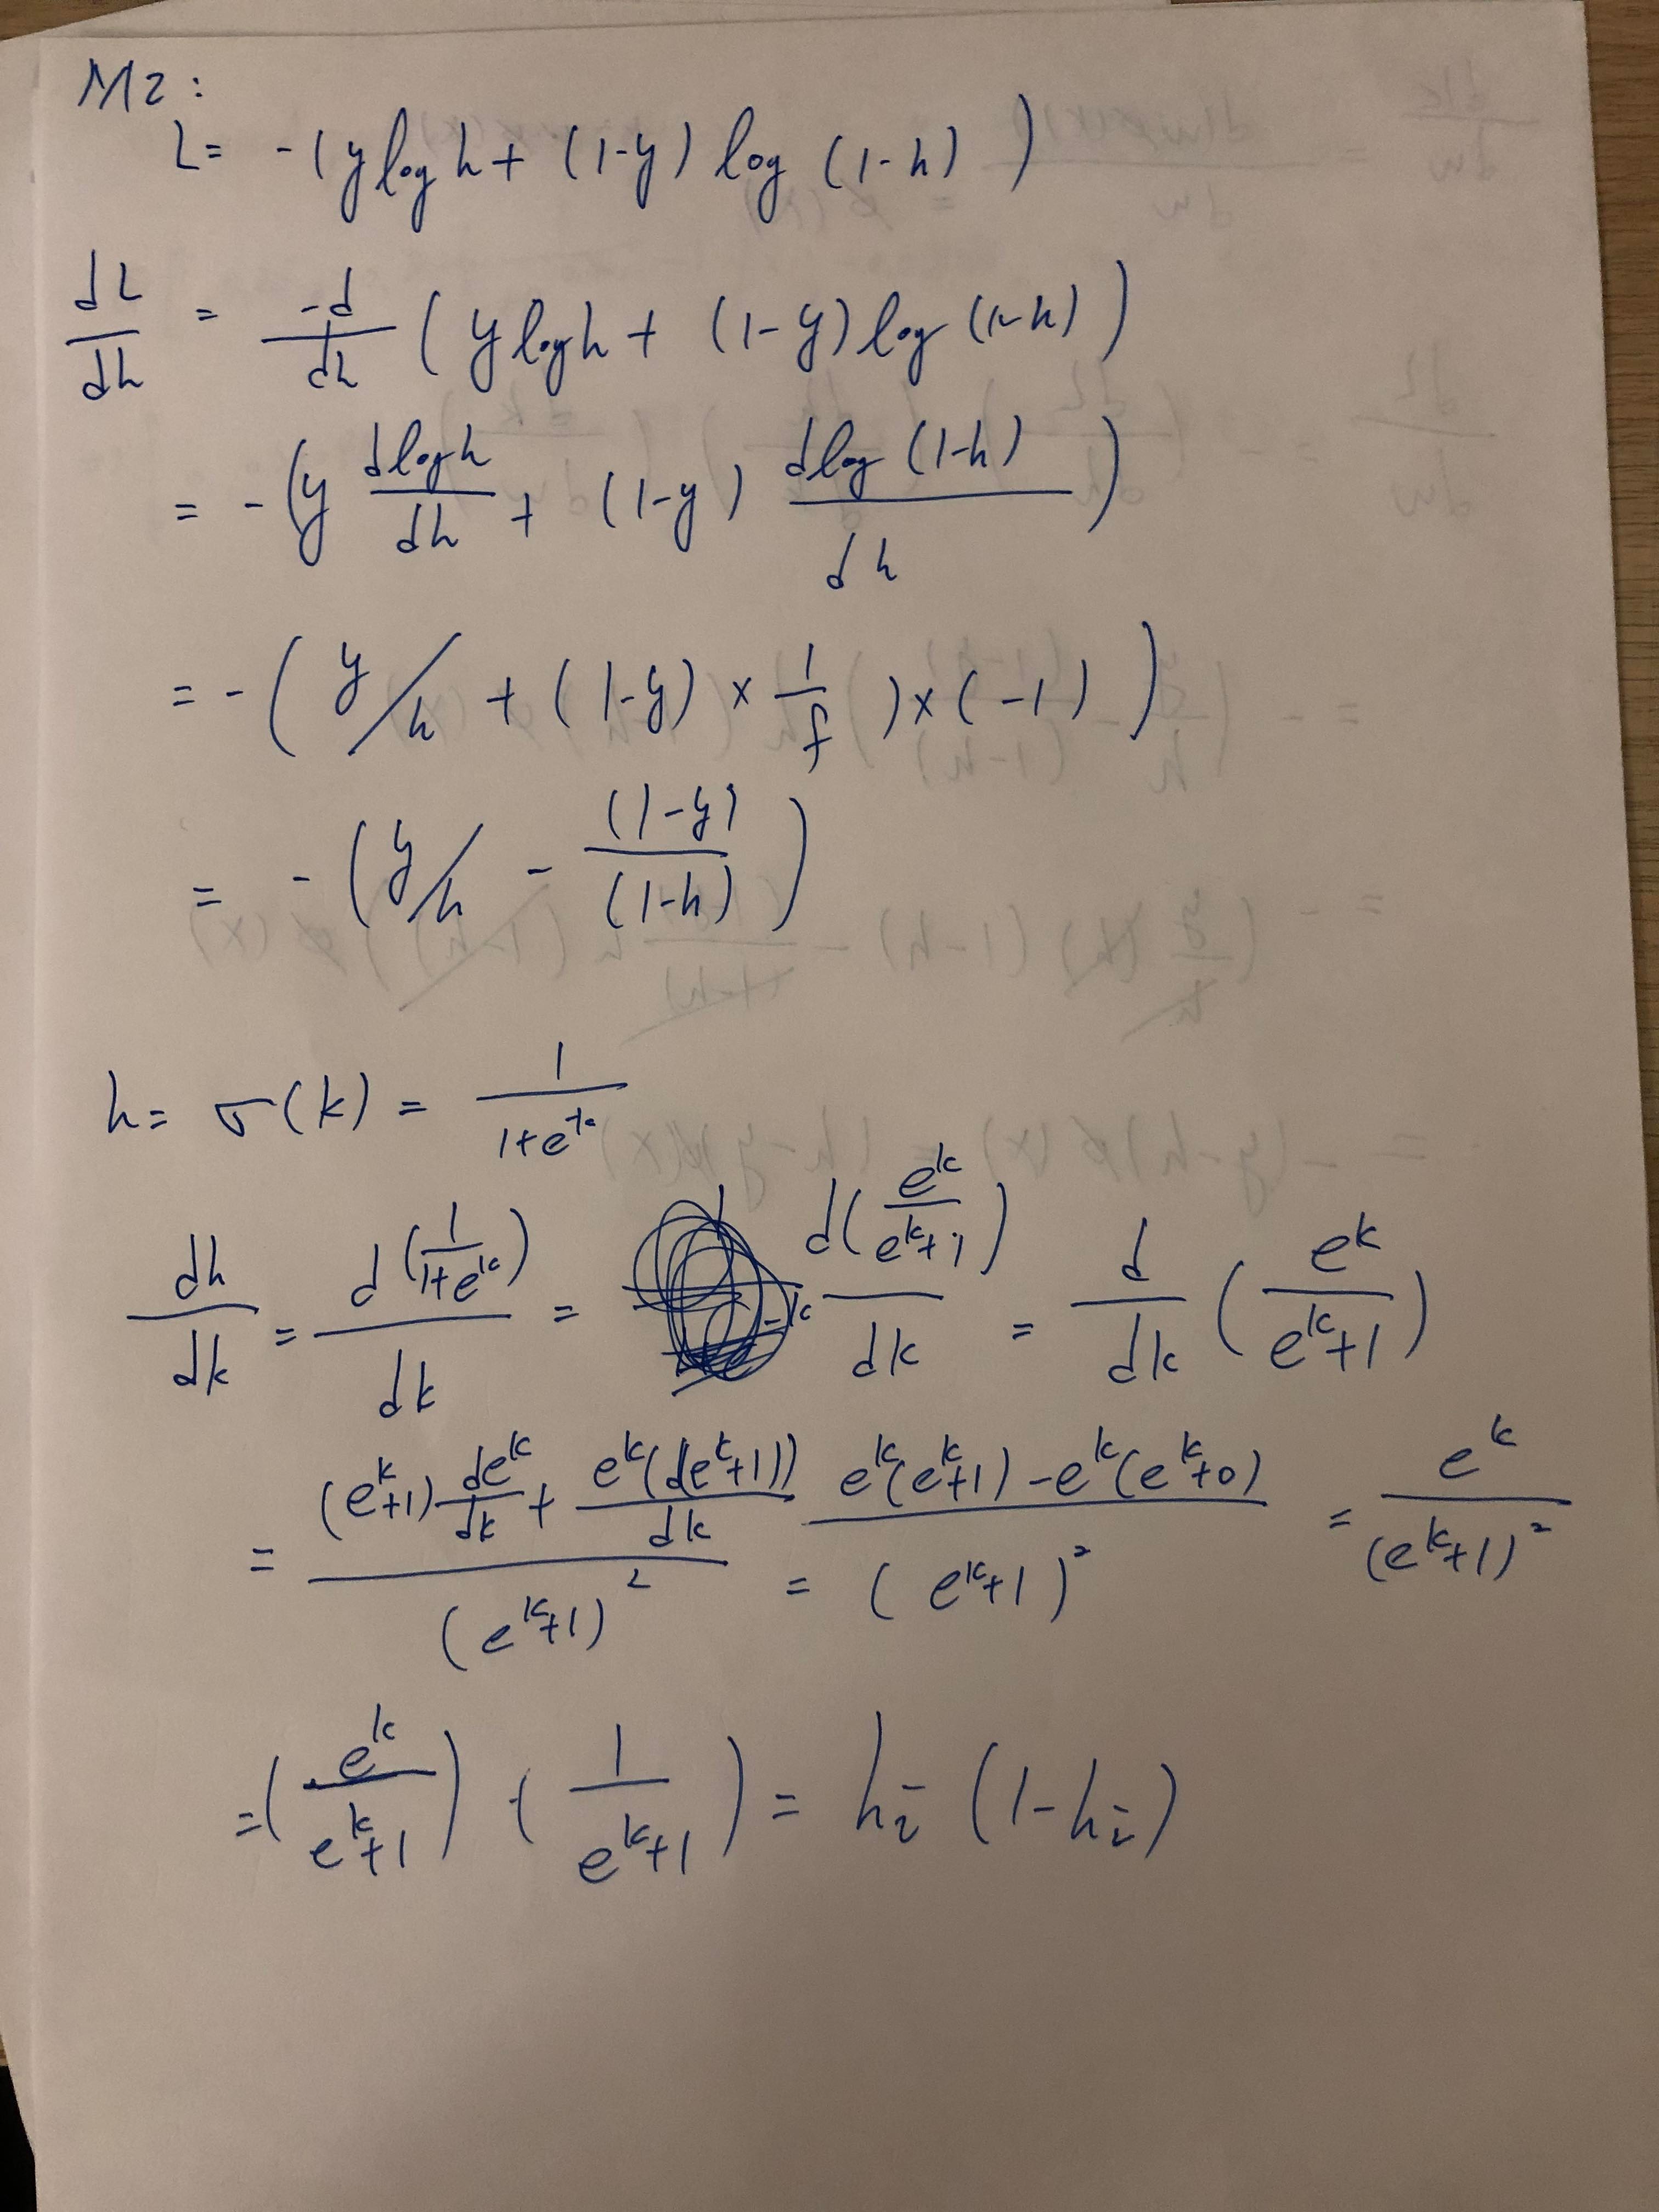 M2:
L = -(y log h + (1-y) log (1-h))
dL/dh = -d/dh (y log h + (1-y) log (1-h))
= -(y dlogh/dh + (1-y) dlog (1-h)/dh)
= -(y/h + (1-y) × 1/f ) × (-1))
= -(y/h - (1-y)/(1-h))
h = σ(k) = 1/(1+e^-k)
dh/dk = d(1/(1+e^k))/dk = d(e^k/(e^k+1))/dk = d/dk (e^k/(e^k+1))
= ((e^k+1) de^k/dk + e^k(d(e^k+1))/dk)/(e^k+1)^2 = (e^k(e^k+1) - e^k(e^k+0))/(e^k+1)^2 = e^k/(e^k+1)^2
= (e^k/(e^k+1)) · (1/(e^k+1)) = h_i (1-h_i)